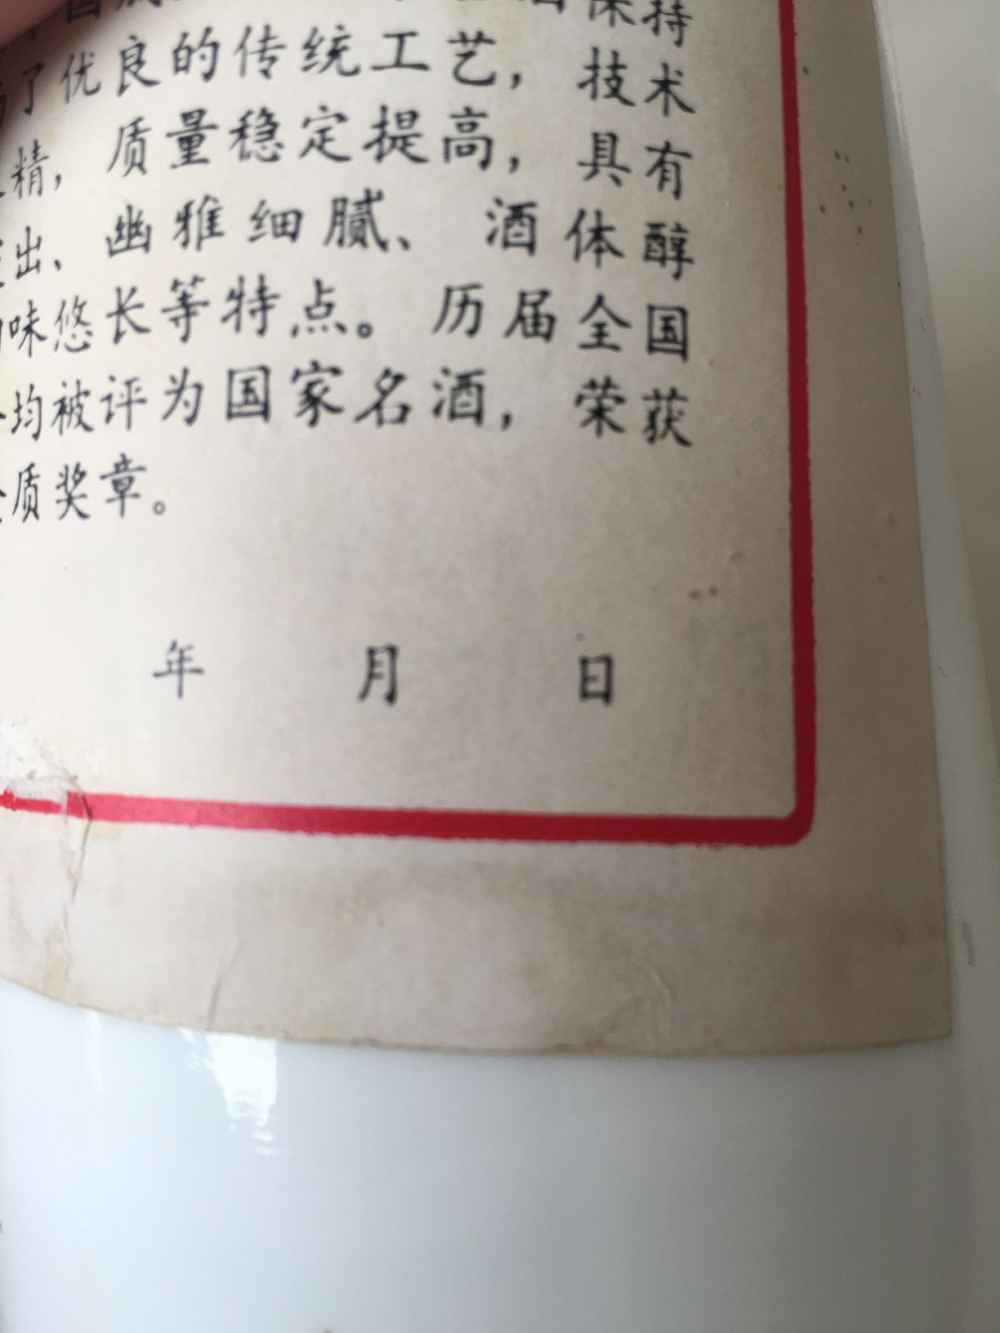 保持
了优良的传统工艺，技术
精，质量稳定提高，具有
出、幽雅细腻、酒体醇
味悠长等特点。历届全国
均被评为国家名酒，荣获
质奖章。
年 月 日